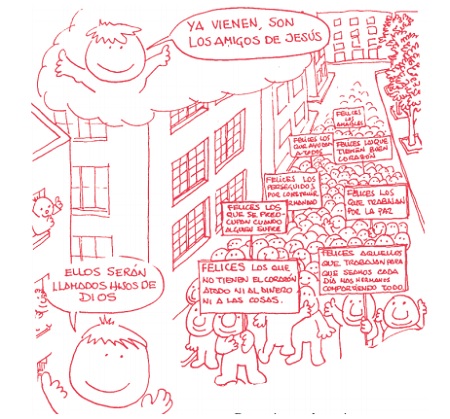 YA VIENEN, SON
LOS AMIGOS DE JESÚS
FELICES
LOS
AMABLES
FELICES LOS
QUE AYUDAN
A TODOS
FELICES LOS QUE
TIENEN BUEN
CORAZÓN
FELICES LOS
PERSEGUIDOS
POR
FELICES LOS
QUE TRABAJAN
POR LA PAZ
FELICES LOS
QUE SE PREO-
CUPAN CUANDO
ALGUIEN SUFRE
FELICES LOS QUE
NO TIENEN EL CORAZÓN
ATADO NI AL DINERO
NI A LAS COSAS.
FELICES AQUELLOS
QUE TRABAJAN PARA
QUE SEAMOS CADA
DÍA MÁS HERMANOS
COMPARTIENDO TODO.
ELLOS SERÁN
LLAMADOS HIJOS DE
DIOS